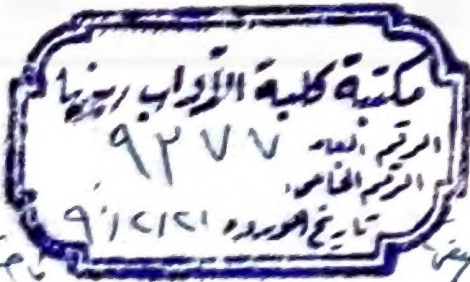 مكتبة كلية الآداب بنها
الرقم العام ٩٢٧٧
الرقم الخاص:
تاريخ الورود